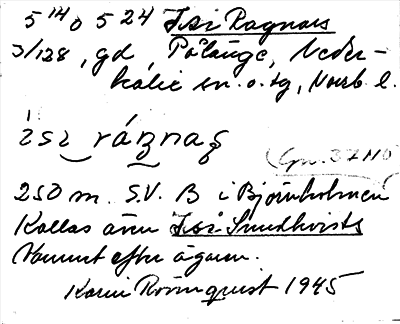 5 14 0 5 24 Isi Ragnars
3/128, gd, Pålänge, Neder-
kalix sn. o. tg, Norrb. l.
ìsi ráŋnaʂ
250 m. S.V. B i Björnholmen
Kallas även Isi Sundkvists
Namnet efter ägaren.
Karin Rönnquist 1945